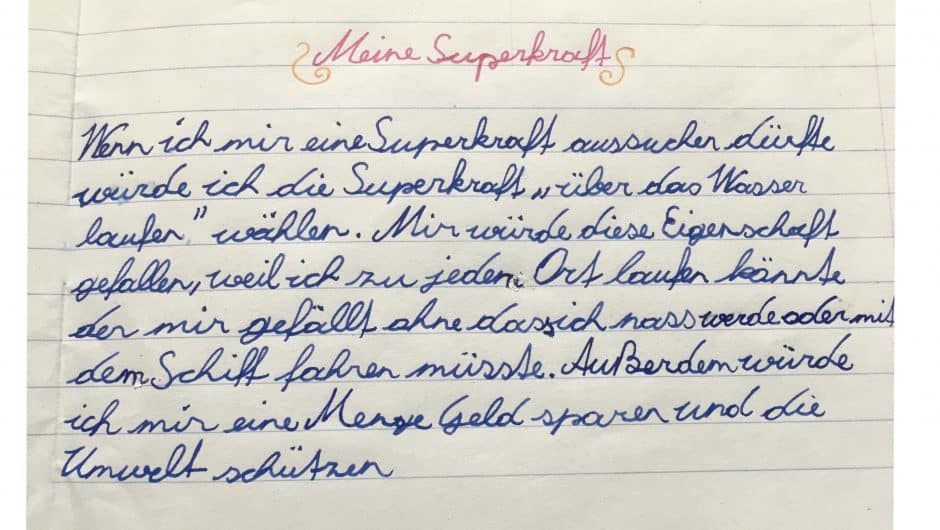 Meine Superkraft
Wenn ich mir eine Superkraft aussuchen dürfte
würde ich die Superkraft „über das Wasser
laufen" wählen. Mir würde diese Eigenschaft
gefallen, weil ich zu jedem Ort laufen könnte
der mir gefällt ohne dass ich nass werde oder mit
dem Schiff fahren müsste. Außerdem würde
ich mir eine Menge Geld sparen und die
Umwelt schützen